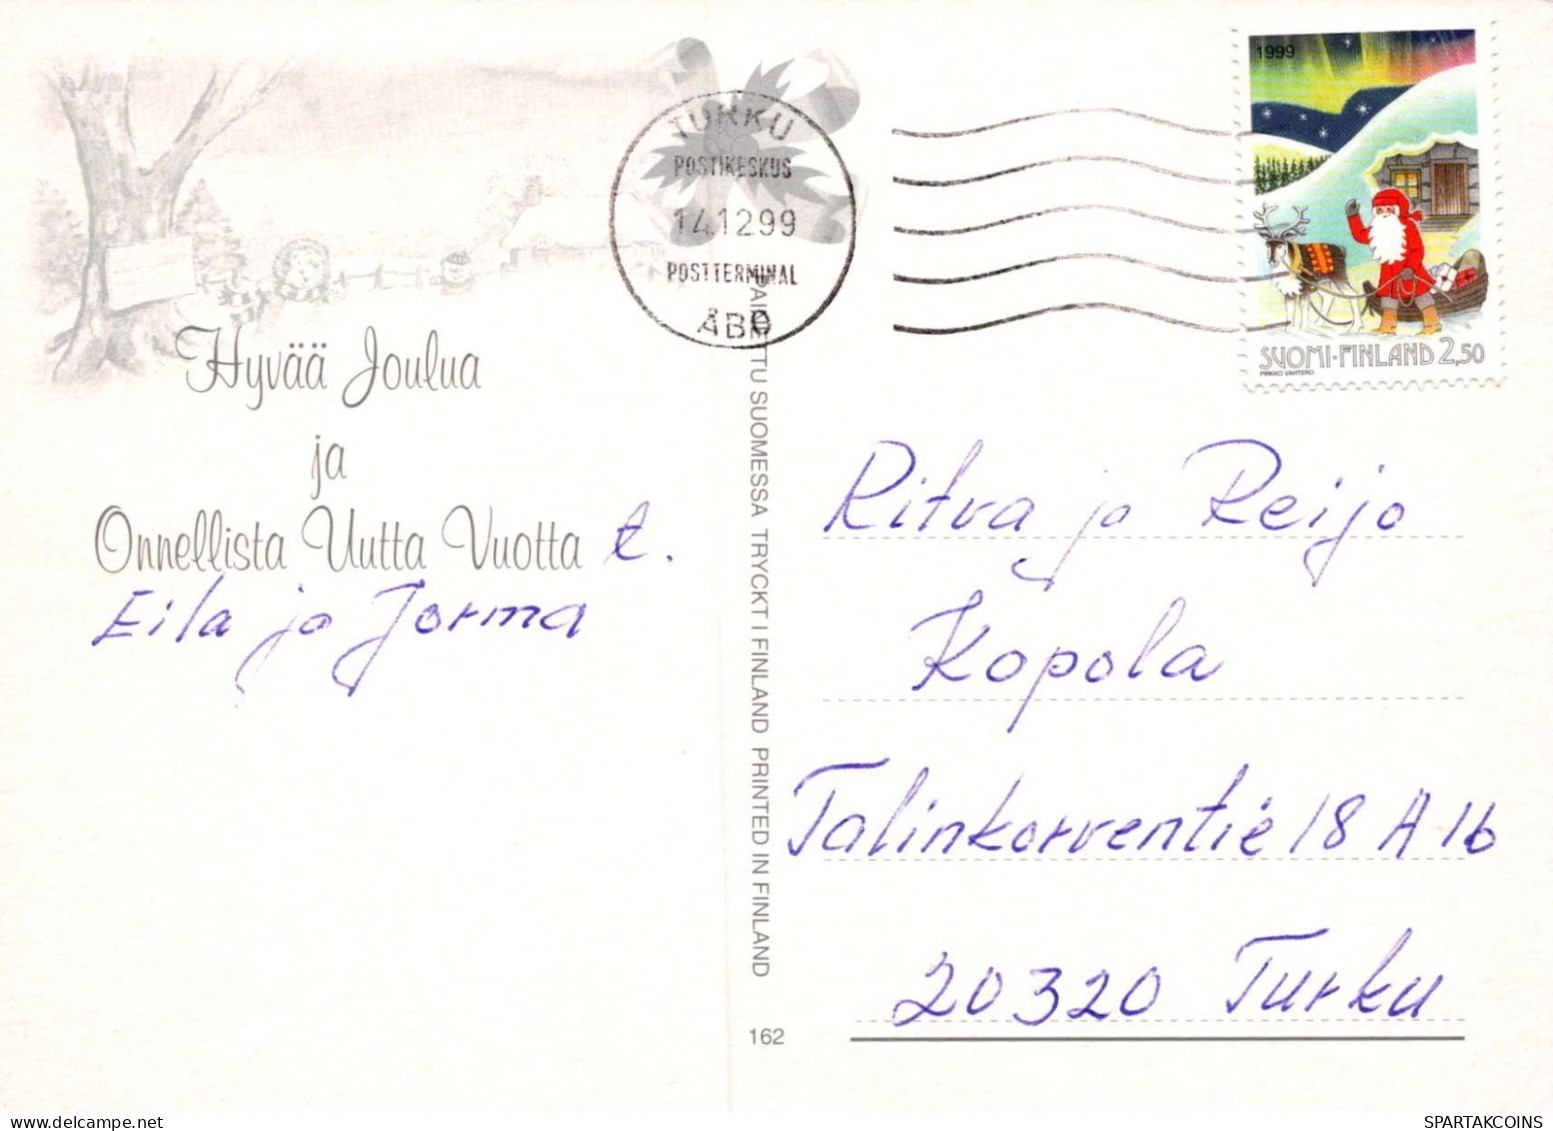 Hyvää Joulua
ja
Onnellista Uutta Vuotta t.
Eila ja Jorma
TURKU
POSTIKESKUS
14.12.99
POSTTERMINAL
ÅBO
1999
SUOMI·FINLAND 2,50
PIRKKO VAHTERO
PAINETTU SUOMESSA TRYCKT I FINLAND PRINTED IN FINLAND
162
Ritva ja Reijo
Kopola
Talinkorventie 18 A 16
20320 Turku
SPARTAKCOINS
delcampe.net